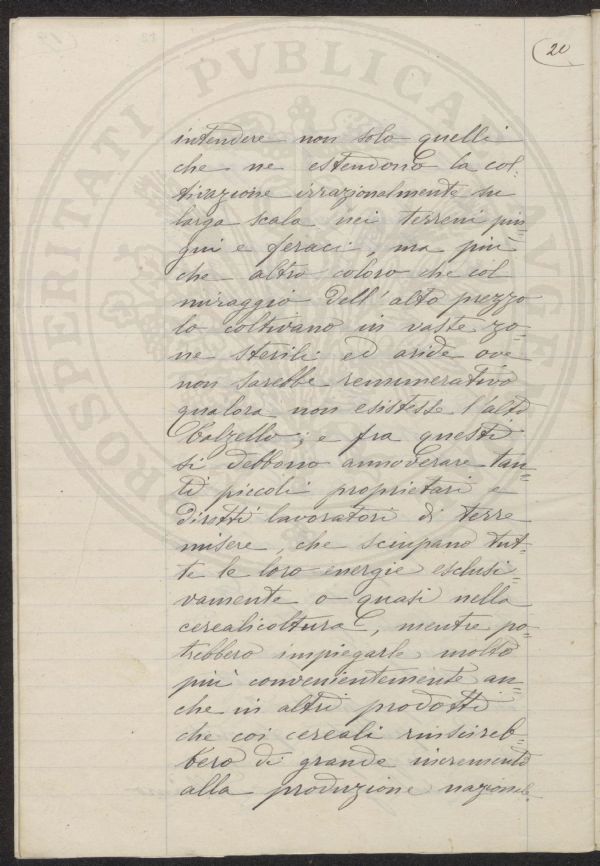 20
intendere non solo quelli
che ne estendono la col-
tivazione irrazionalmente su
larga scala nei terreni pin-
gui e feraci, ma più
che altro coloro che col
miraggio dell'alto prezzo
lo coltivano in vaste zo-
ne sterili ed aride ove
non sarebbe remunerativo
qualora non esistesse l'alto
balzello; e fra questi
si debbono annoverare tan-
ti piccoli proprietari e
diretti lavoratori di terre
misere, che sciupano tut-
te le loro energie esclusi-
vamente o quasi nella
cerealicoltura, mentre po-
trebbero impiegarle molto
più convenientemente an-
che in altri prodotti
che coi cereali riuscireb-
bero di grande incremento
alla produzione nazionale
PROSPERITATI PVBLICAE AVGE